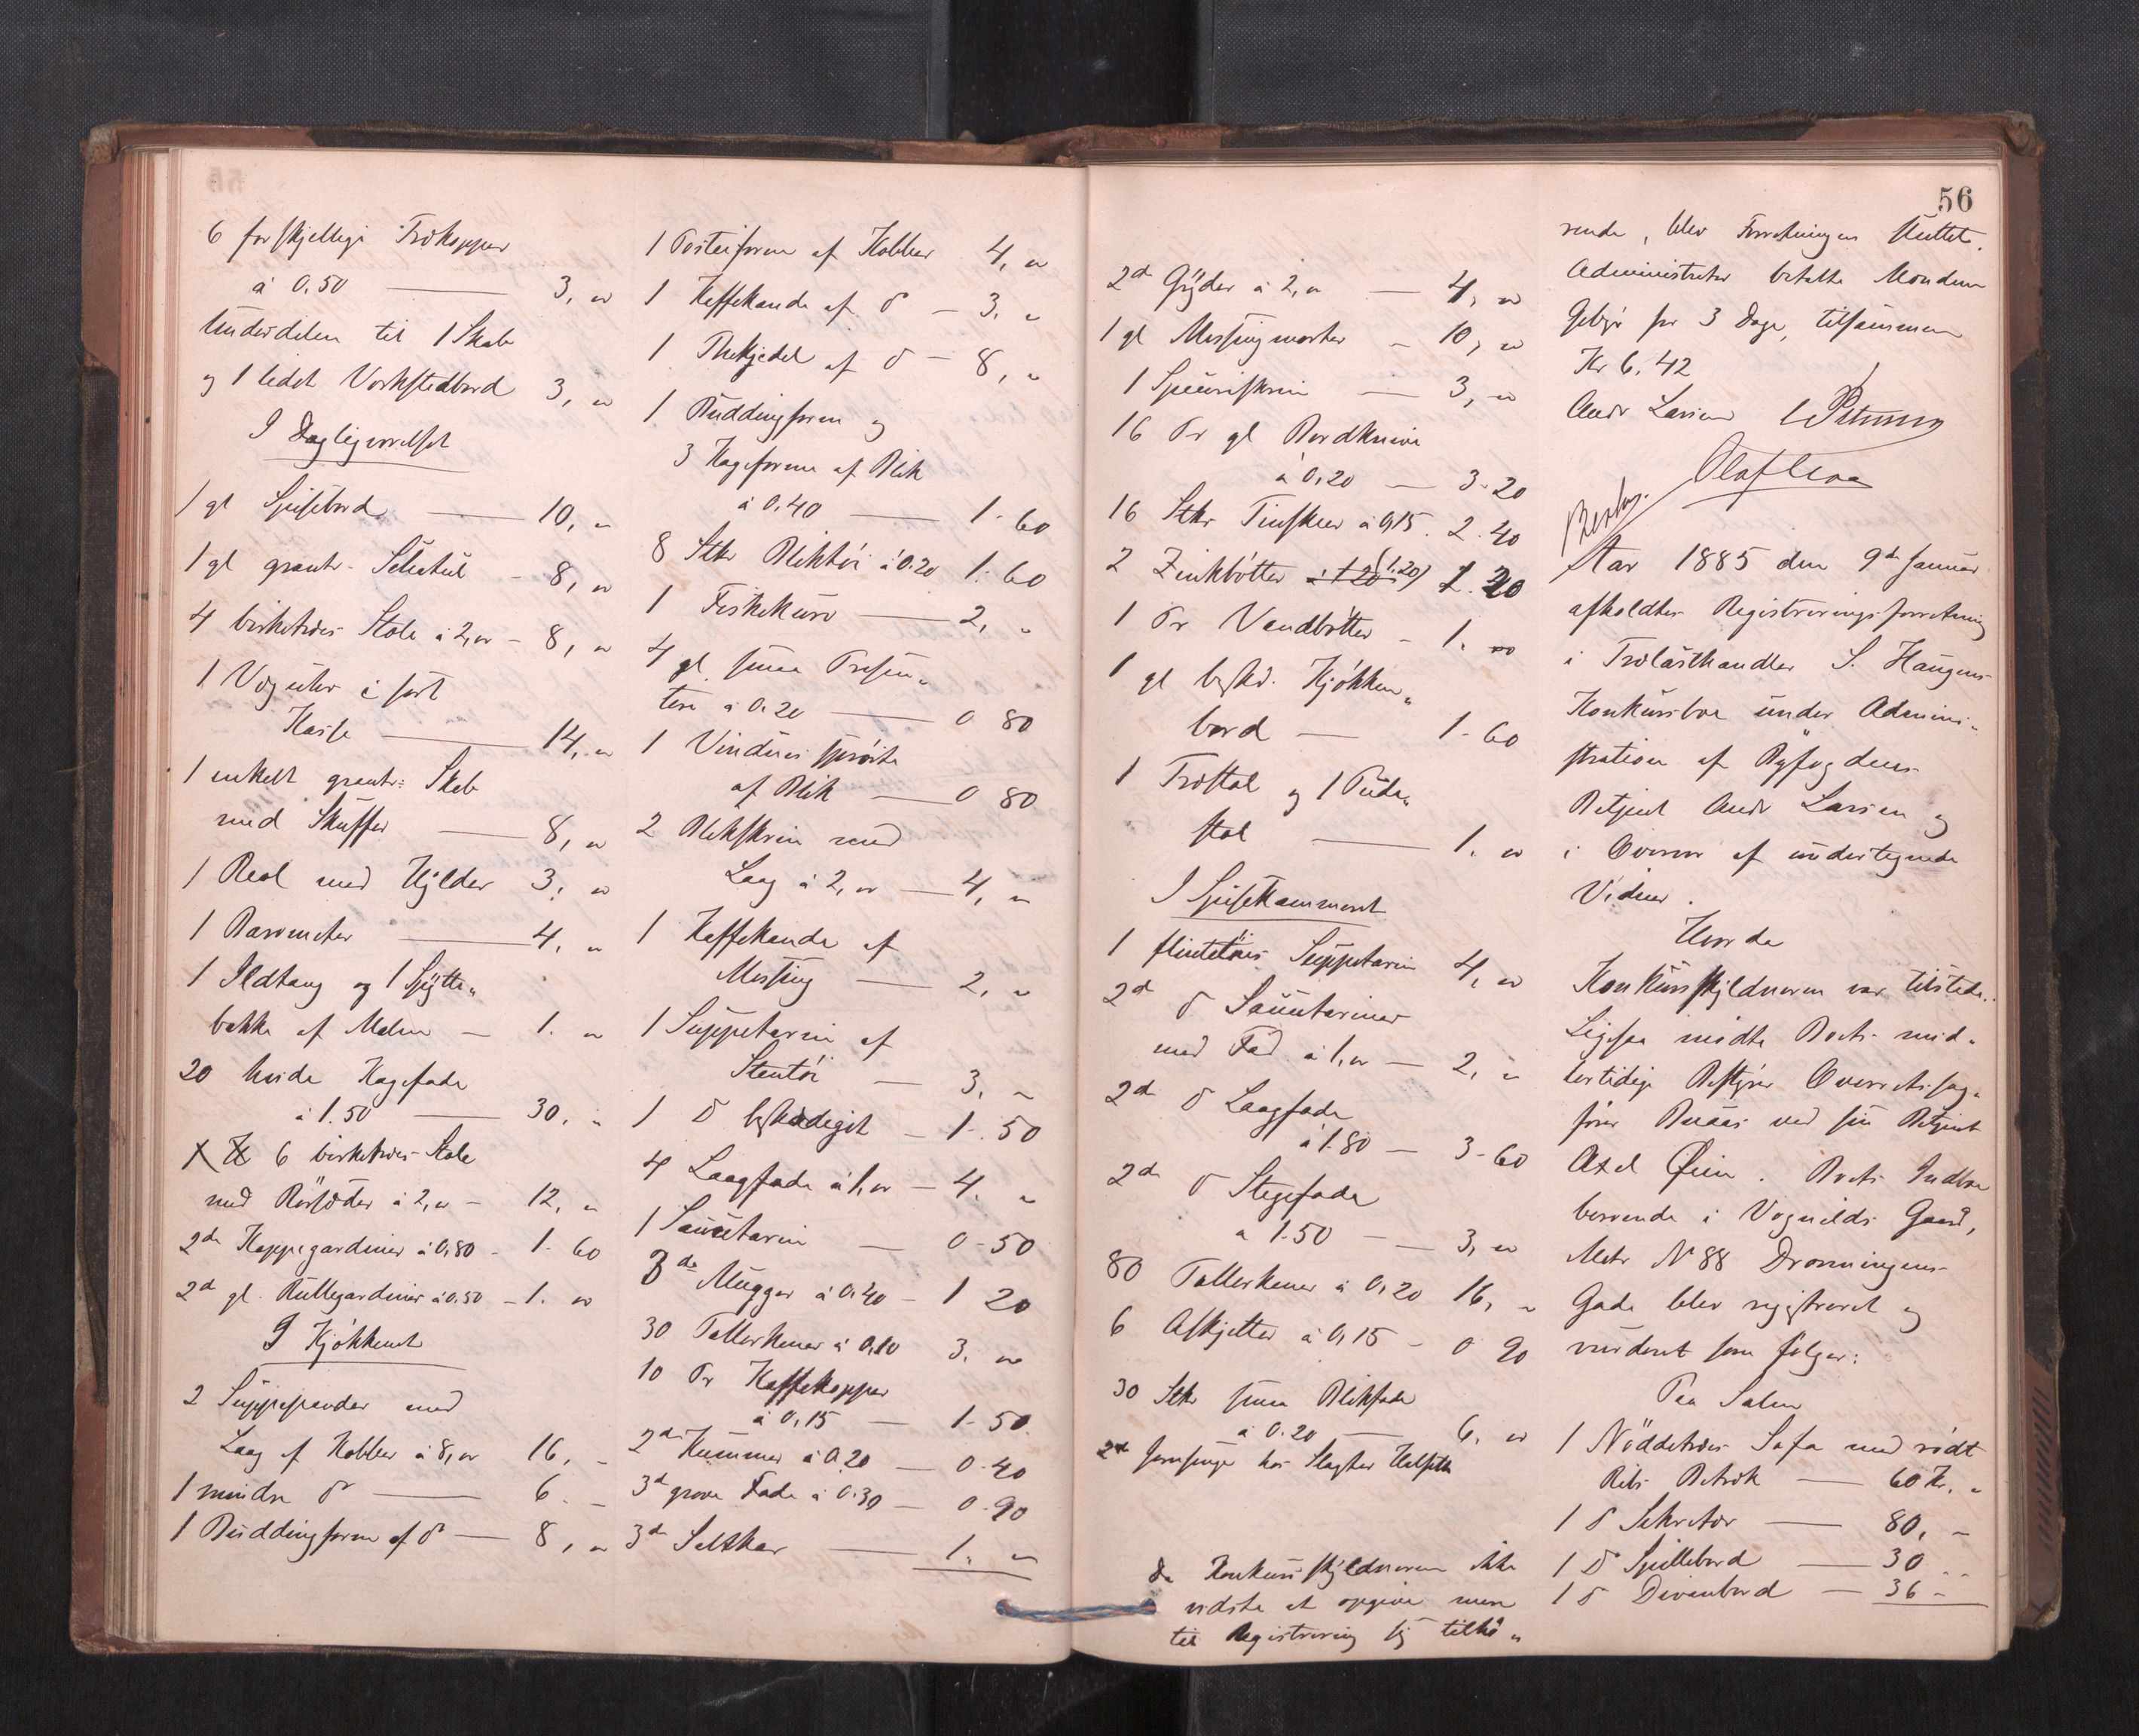 6 forskjellige Trækopper
à 0.50 — 3, "
Underdelen til 1 Skab
og 1 lidet Værkstedbord 3, "
I Dagligværelset
1 gl Spisebord — 10, "
1 gl grantr. - 8, "
4 birketræes Stole à 2, " - 8, "
1 Væguhr i sort
Kasse — 14, "
1 enkelt grantr: Skab
med Skuffer — 8, "
1 Reol med Hylder 3, "
1 Barometer — 4, "
1 Ildtang og 1 Spytte„
bakke af Malm — 1. "
20 hvide Kagefade
à 1.50 — 30, "
6 birketræes Stole
med Rørsæder à 2, " - 12, "
2de Kappegardiner à 0,80 - 1. 60
2d gl. Rullegardiner à 0.50 - 1. "
I Kjøkkenet
2 Suppepander med
Laag af Kobber à 8, " 16, -
1 mindre do — 6. -
1 Buddingform af do — 8, "
1 Posteiform af Kobber 4, "
1 Kaffekande af do - 3. "
1 Thekjedel af do - 8, "
1 Buddingform og
3 Kageforme af Blik
à 0,40 — 1. 60
8 Stkr Bliktøi à 0.20 1. 60
1 Fiskekurv — 2, "
4 gl. smaa Presen„
tere à 0.20 — 0 80
1 Vinduessprøite
af Blik — 0 80
2 Blikskrin med
Laag à 2, " — 4, "
1 Kaffekande af
Messing — 2, "
1 Suppeterrin af
Stentøi — 3, "
1 do beskadiget - 1. 50
4 Laagfade à 1, " - 4. "
1 Sauceterrin — 0-50
3de Mugger à 0.40 - 1 20
30 Tallerkener à 0,10 3. "
10 Pr Kaffekopper
à 0,15 — 1. 50
2de Kummer à 0.20 — 0.40
3d grove Fade à 0.30 — 0.90
3de Saltkar — 1. "
56
2de Gryder à 2, " — 4, "
1 gl Messingmorter - 10, "
1 — 3, "
16 Pr gl Bordknive
à 0,20 — 3. 20
16 Stkr Tinskeer à 0,15. 2. 40
2 Zinkbøtter (1.20)
1 Pr Vandbøtter - 1. "
1 gl besk. Kjøkken„
bord — 1-60
1 Træstol og 1 Pude„
stol — 1. "
I Spisekammeret
1 flintetøies Suppeterrin 4, "
2de do Sauceterriner
med Fad à 1, " — 2, "
2de do Laagfade
à 1.80 — 3-60
2de do Stegefade
à 1.50 — 3, "
80 Tallerkener à 0,20 16, "
6 Asjetter à 0,15 - 0 90
30 Stkr smaa Blikfade
à 0.20 — 6, "
2de Jernsenge hos Slagter
Da Konkursskyldneren ikke
vidste at opgive mere
til Registrering sig tilhø„
rende, blev Forretningen sluttet.
Administrator betalte Mændene
Gebyr for 3 Dage, tilsammen
Kr 6.42
Andr Larsen
Olaf
Aar 1885 den 9de Januar
afholdtes Registreringsforretning
i Trælasthandler S. Haugens
Konkursbo under Admini„
stration af Byfogdens
Betjent Andr Larsen og
i Overvær af undertegnede
Vidner.
Hvorda
Konkursskyldneren var tilstede.
Ligesaa mødte Boets mid„
lertidige Bestyrer Overretssag„
fører Buaas ved sin Betjent
Axel Øien. Boets Indbo
beroende i Vognilds Gaard,
Matr No 88 Dronningens
Gade blev registreret og
vurderet som følger:
Paa Salen
1 Nøddetræes Sofa med rødt
Ribs Betræk — 60 Kr. "
1 do Sekretær — 80, -
1 do Spillebord — 30 --
1 do Divanbord — 36 -